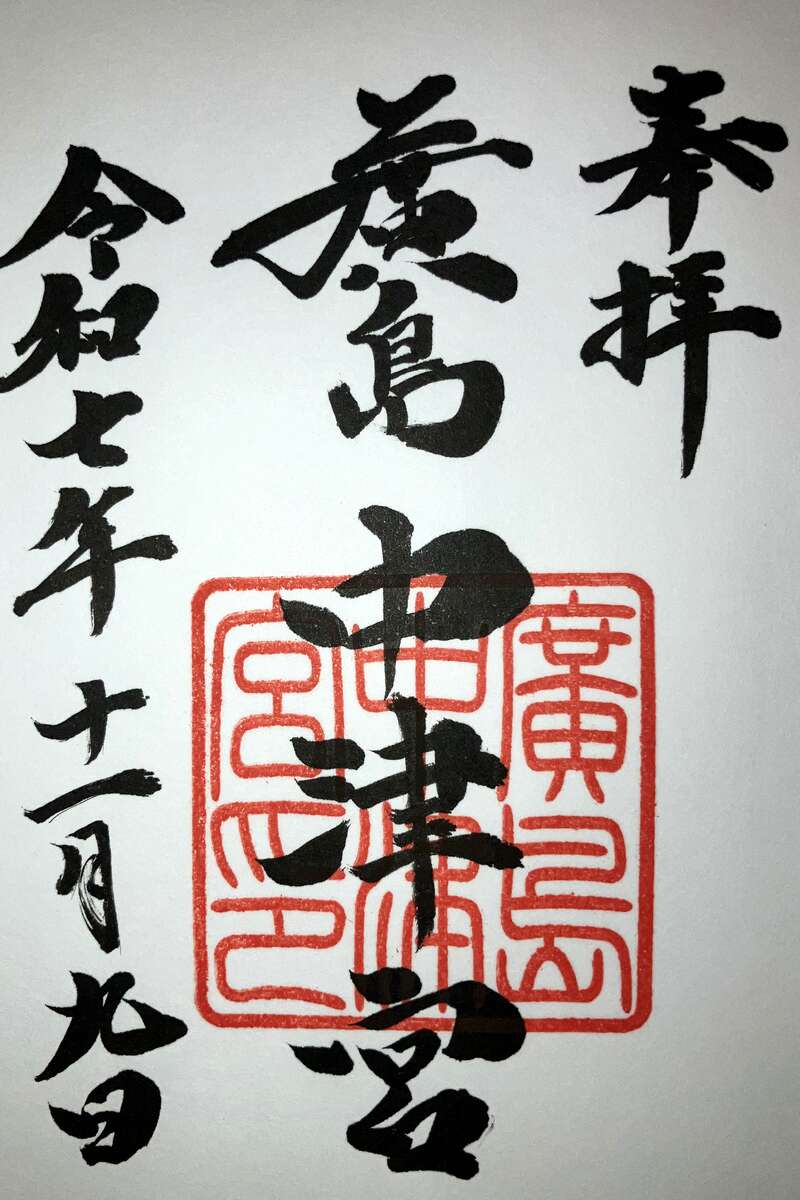 奉拝
廣島中津宮
廣島
中津
宮印
令和七年十一月九日